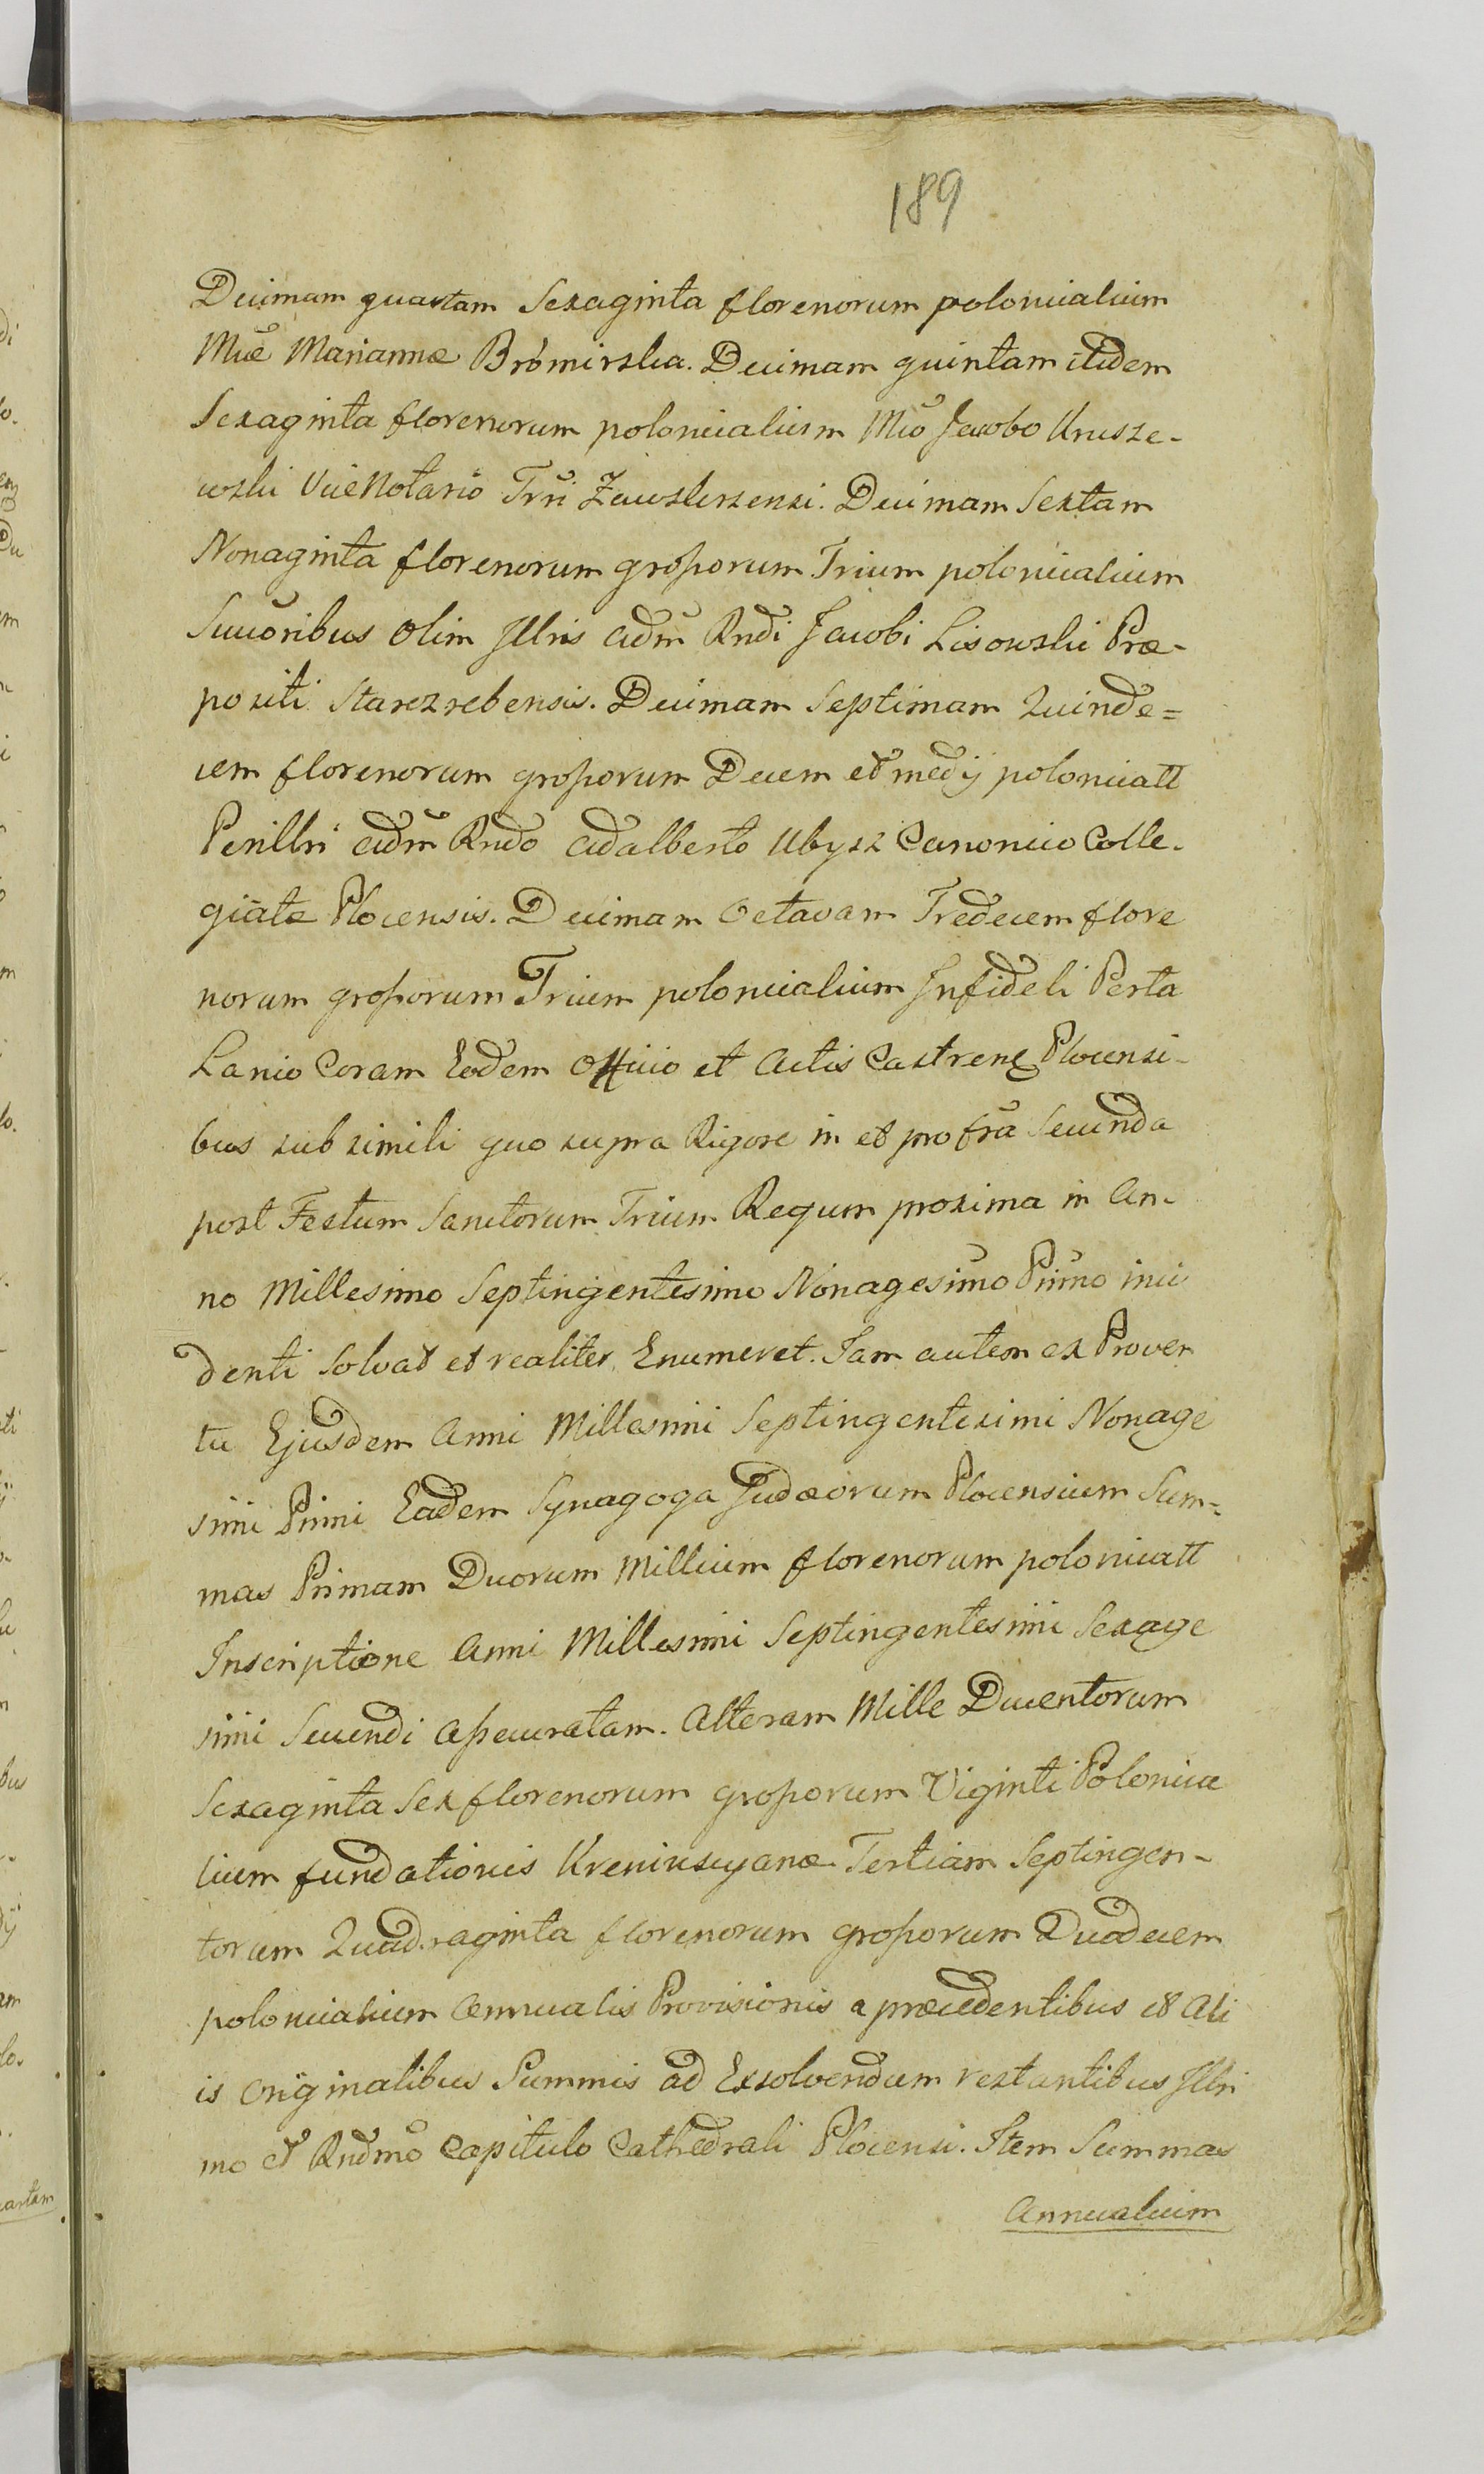 189
Decimam quartam Sexaginta florenorum polonicalium
Mcæ Mariannæ Bromirska. Decimam quintam itidem
Sexaginta florenorum polonicalium Mco Jacobo Krusze-
wski Vice Notario Trri Zawskrzensi. Decimam Sextam
Nonaginta florenorum grossorum Trium polonicalium
Succoribus Olim Illris adm Rndi Jacobi Lisowski Præ-
positi Starozrebensis. Decimam Septimam Quinde=
cem florenorum grossorum Decem et medij polonicall
Perillri adm Rndo Adalberto Ubysz Canonico Colle-
giatæ Plocensis. Decimam Octavam Tredecem flore
norum grossorum Trium polonicalium Infideli Perta
Lanio Coram Eodem Officio et Actis Castren Plocensi-
bus sub simili quo supra Rigore in et pro fria Secunda
post Festum Sanctorum Trium Regum proxima in An-
no Millesimo Septingentesimo Nonagesimo Primo inci
denti Solvat et realiter Enumeret. Iam autem ex Proven
tu Ejusdem Anni Millesimi Septingentesimi Nonage
simi Primi Eadem Synagoga Judæorum Plocensium Sum=
mas Primam Duorum Millium florenorum polonicall
Inscriptione Anni Millesimi Septingentesimi Sexage
simi Secundi assecuratam. Alteram Mille Ducentorum
Sexaginta Sex florenorum grossorum Viginti Polonica
lium fundationis Krenicscyanæ Tertiam Septingen-
torum Quadraginta florenorum grossorum Duodecem
polonicalium Annualis Provisionis a præcedentibus et Ali
is Originalibus Summis ad Exsolvendum restantibus Illri
mo et Rndmo Capitulo Cathedrali Plocensi. Item Summas
Annualium